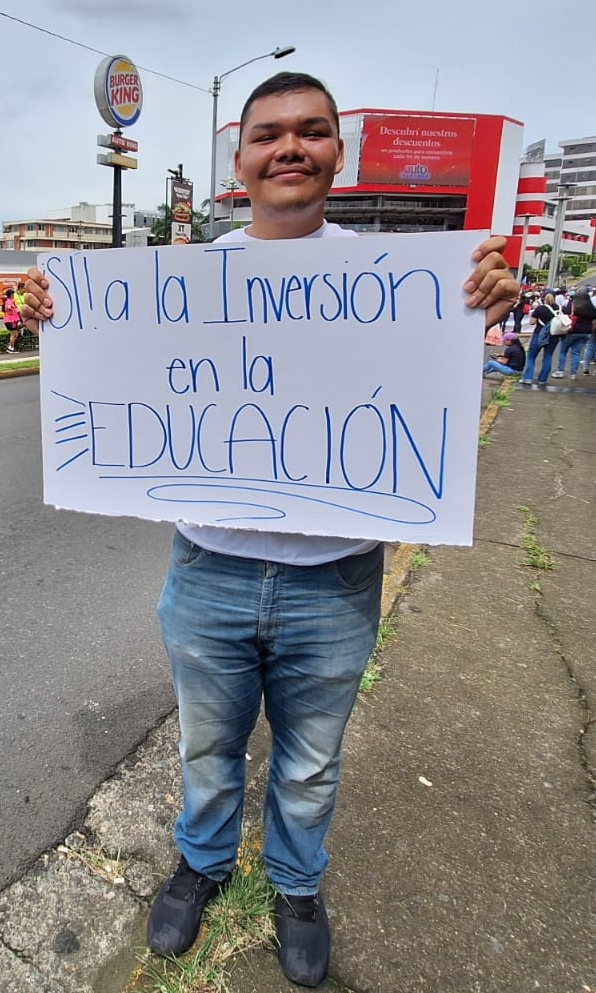 BURGER
KING
AUTO KING
Descubrí nuestros
descuentos
en productos para consentirte
cada fin de semana
auto
¡SI!! a la Inversión
en la
EDUCACIÓN